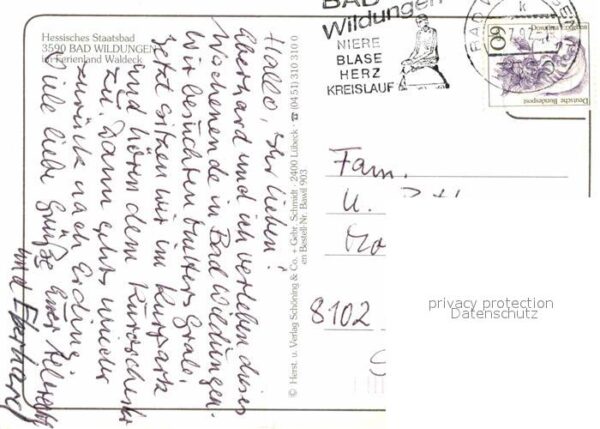 Hessisches Staatsbad
3590 BAD WILDUNGEN
im Ferienland Waldeck
Hallo, Ihr Lieben!
Eberhard und ich verleben dieses
Wochenende in Bad Wildungen.
Wir besuchten Mutters Grab.
Jetzt sitzen wir im Kurpark
und hören dem Kurorchester
zu. Dann geht's wieder
zurück nach Erding.
Viele liebe Grüße Eure
und Eberhard
© Herst. u. Verlag Schöning & Co. + Gebr. Schmidt · 2400 Lübeck · ☎ (04 51) 310 310 0
en Bestell-Nr. Bawil 903
BAD
Wildungen
NIERE
BLASE
HERZ
KREISLAUF
BAD WILDUNGEN
k
60
Deutsche Bundespost
Fam.
u.
8102
privacy protection
Datenschutz